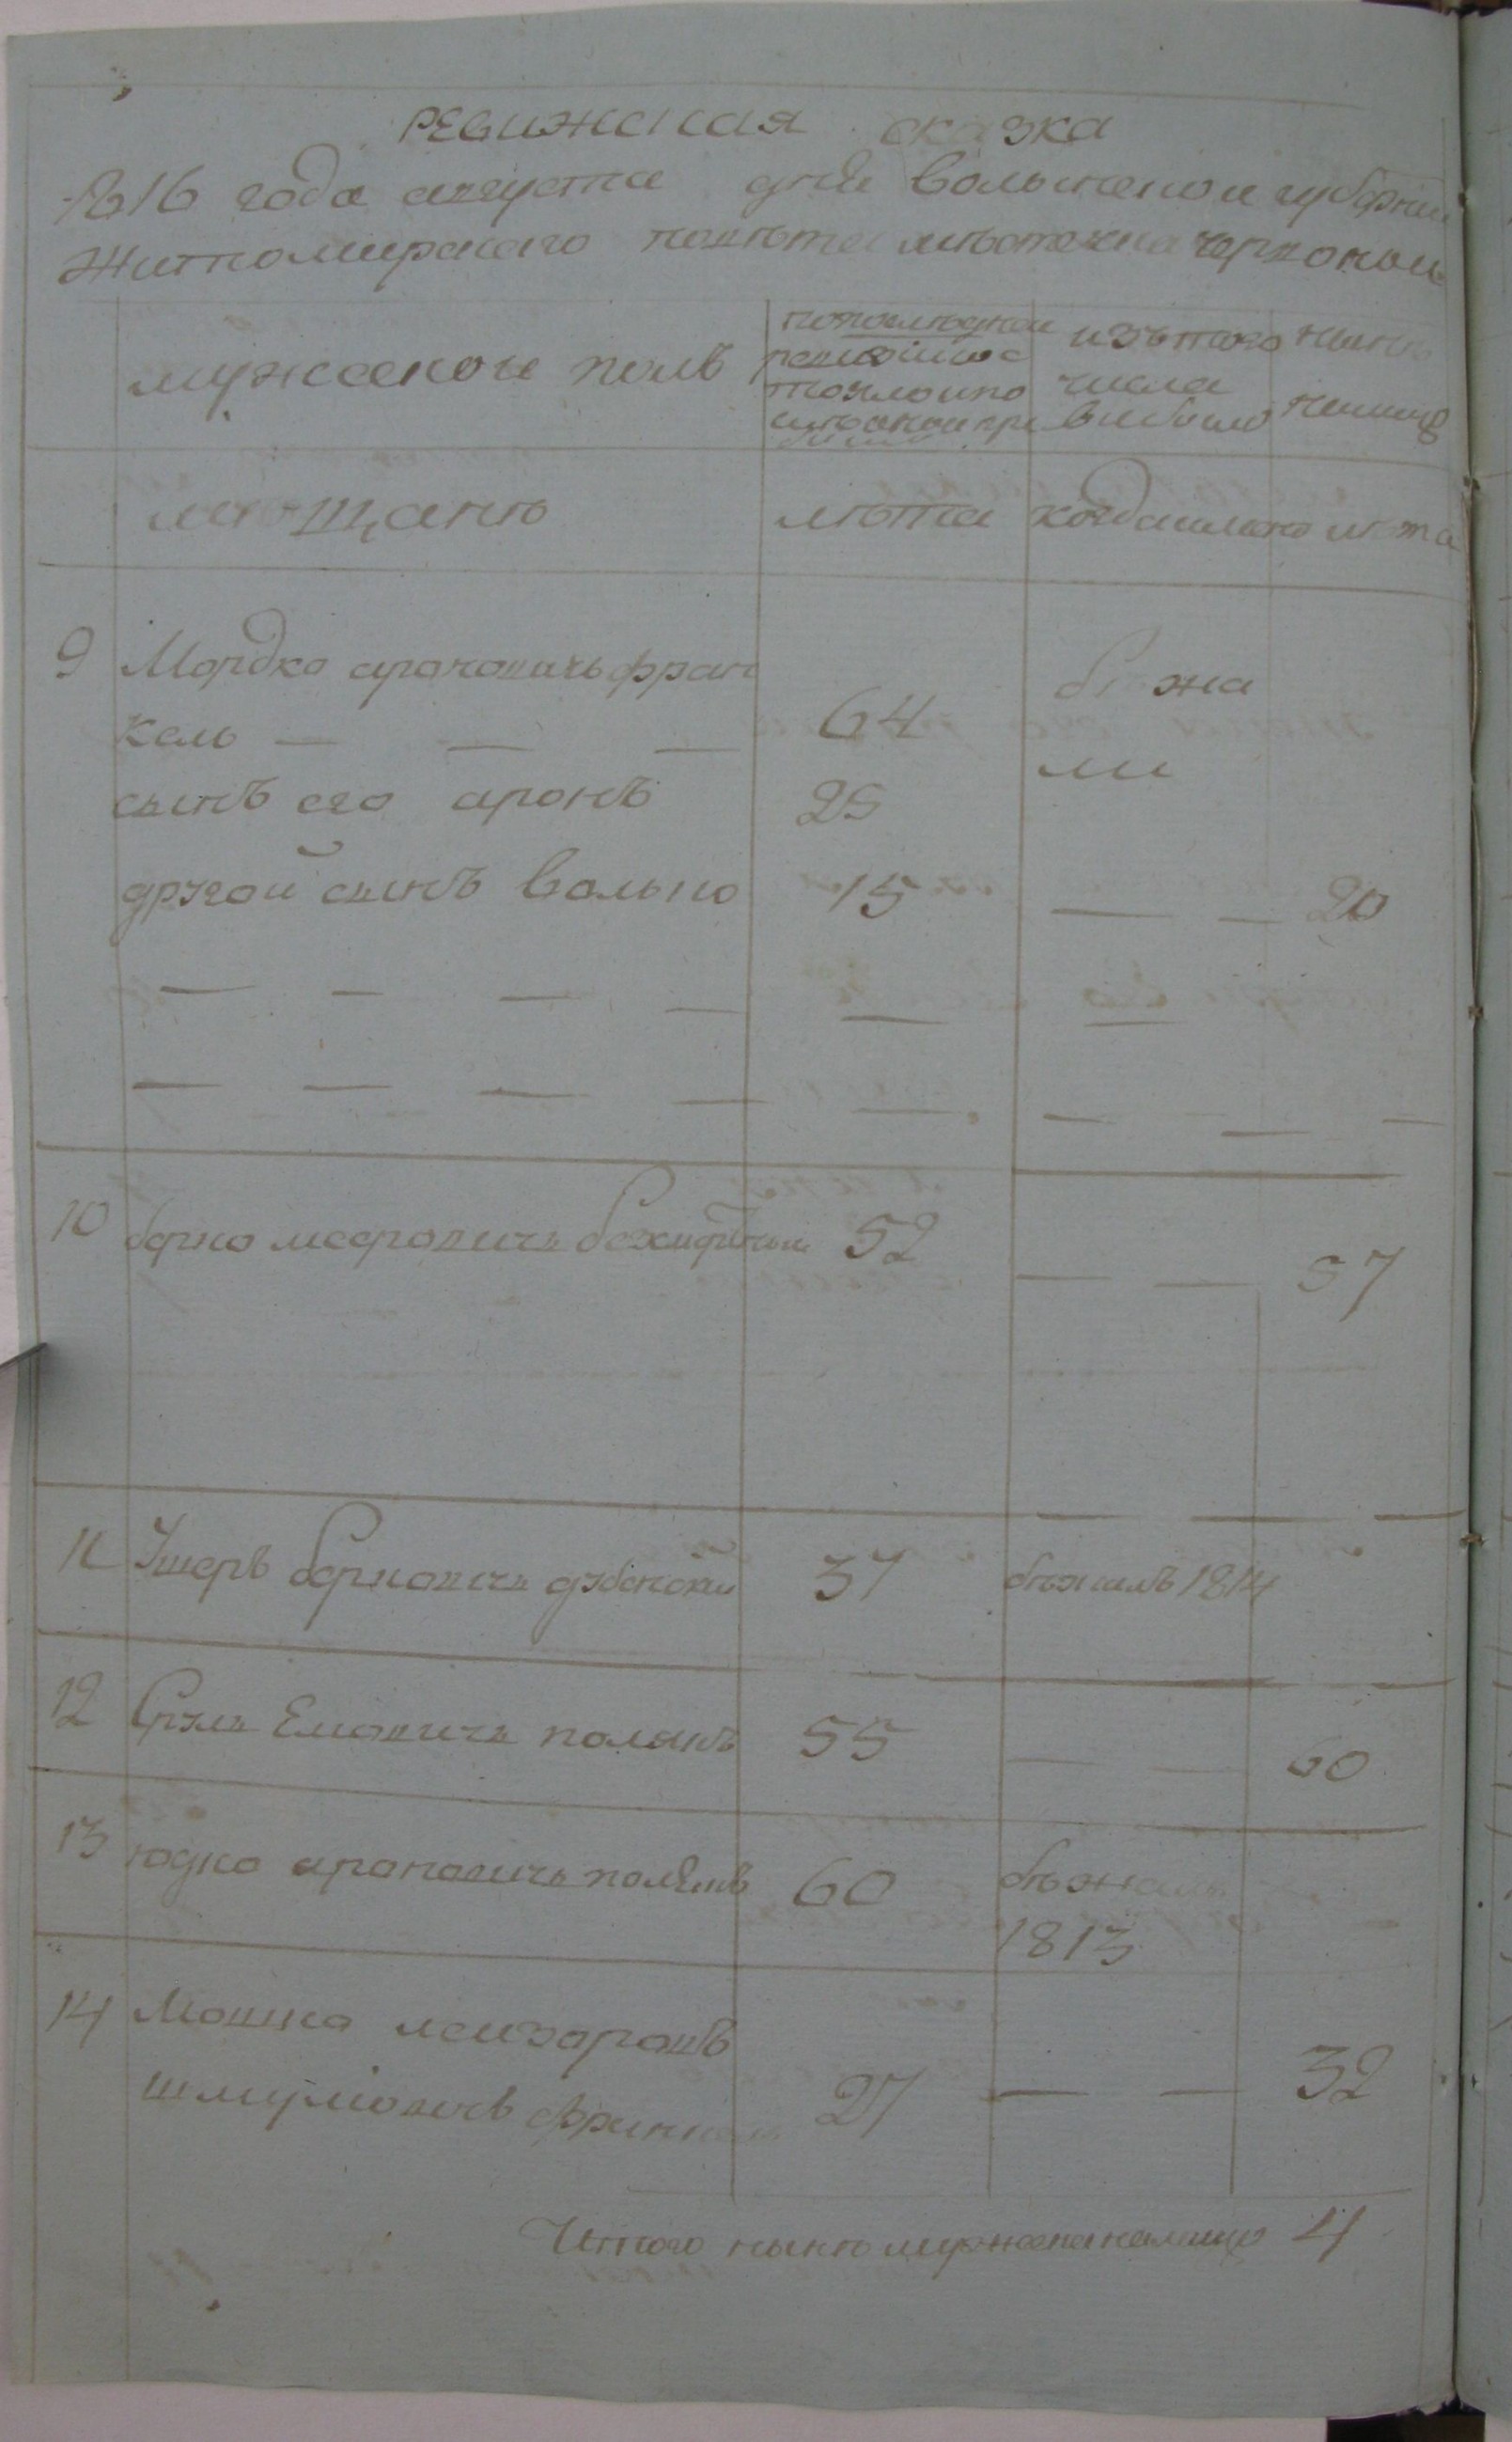 РЕВИЖСКАЯ сказка
1816 года августа дня волынской губернии
Житомирского повѣта мѣстечка черлоной
мужеской полъ
попослѣдней
ревизіи со
тояло и по
слѣ оной при
было
изътого
числа
выбыло
нынѣ
налицо
мещанѣ
лѣта
когда именно
лѣта
9 Мордко ароновичь фран
кель — — — 64
бежа
ли
сынъ его аронъ 25
другой сынъ волько 15 — — 20
— — — — — —
— — — — — — — —
10 берко мееровичь 52 — — 57
11 Ушеръ берковичь дубенски 37 бѣжалъ 1814
12 Сруль Елиовичь полякъ 55 — — 60
13 юдко ароновичь полякъ 60 бѣжалъ
1813
14 Мошко лейзоровъ
шмулиовичъ 27 — — 32
Итого нынѣ мужеска налицо 4